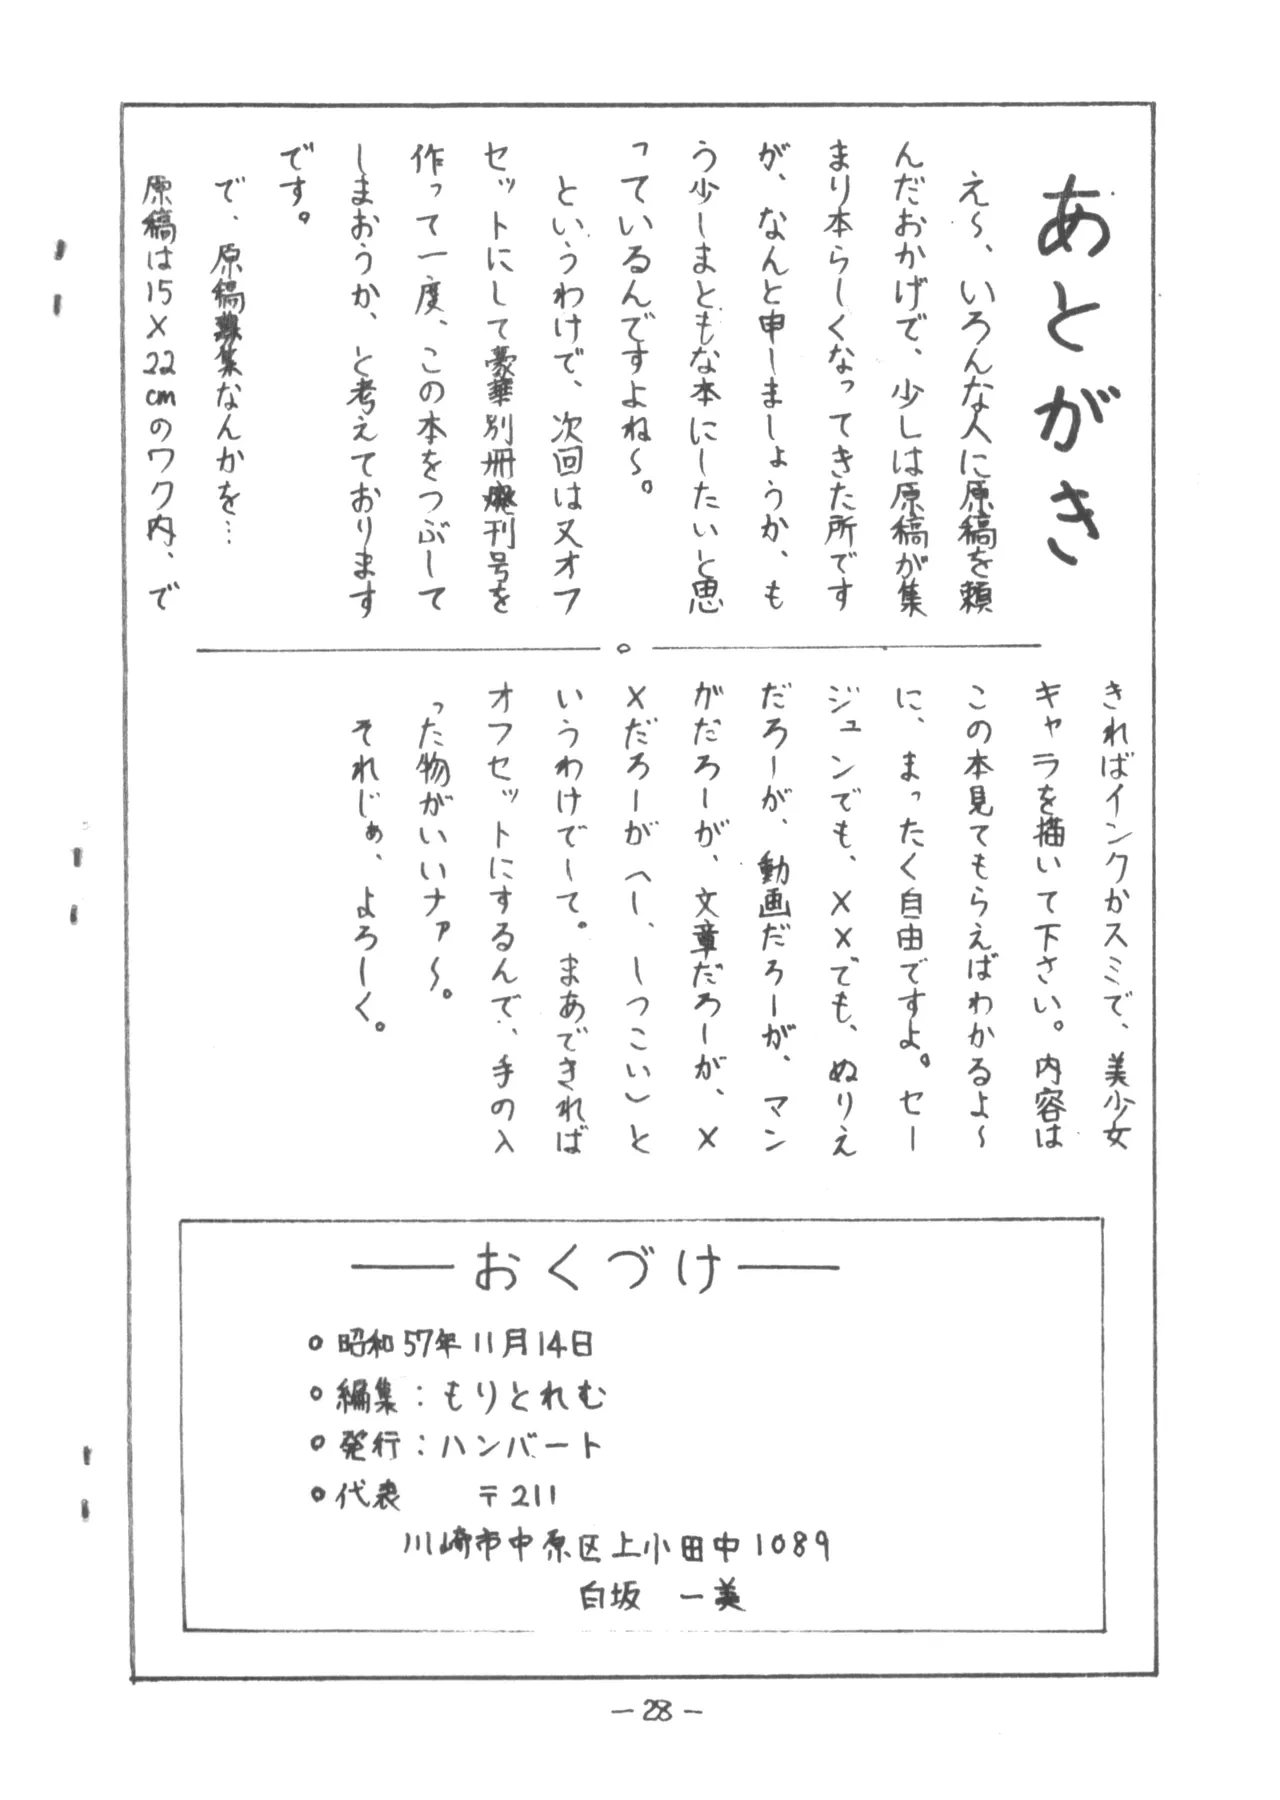 あとがき
え〜、いろんな人に原稿を頼
んだおかげで、少しは原稿が集
まり本らしくなってきた所です
が、なんと申しましょうか、も
う少しまともな本にしたいと思
っているんですよね〜。
というわけで、次回は又オフ
セットにして豪華別冊廃刊号を
作って一度、この本をつぶして
しまおうか、と考えております
です。
で、原稿募集なんかを…
原稿は15×22cmのワク内、で
きればインクかスミで、美少女
キャラを描いて下さい。内容は
この本見てもらえばわかるよ〜
に、まったく自由ですよ。セー
ジュンでも、××でも、ぬりえ
だろーが、動画だろーが、マン
がだろーが、文章だろーが、×
×だろーが(へし、しつこい)と
いうわけでして。まあできれば
オフセットにするんで、手の入
った物がいいナァ〜。
それじぁ、よろーく。
おくづけ
○昭和57年11月14日
○編集:もりとれむ
○発行:ハンバート
○代表 〒211
川崎市中原区上小田中1089
白坂 一美
-28-